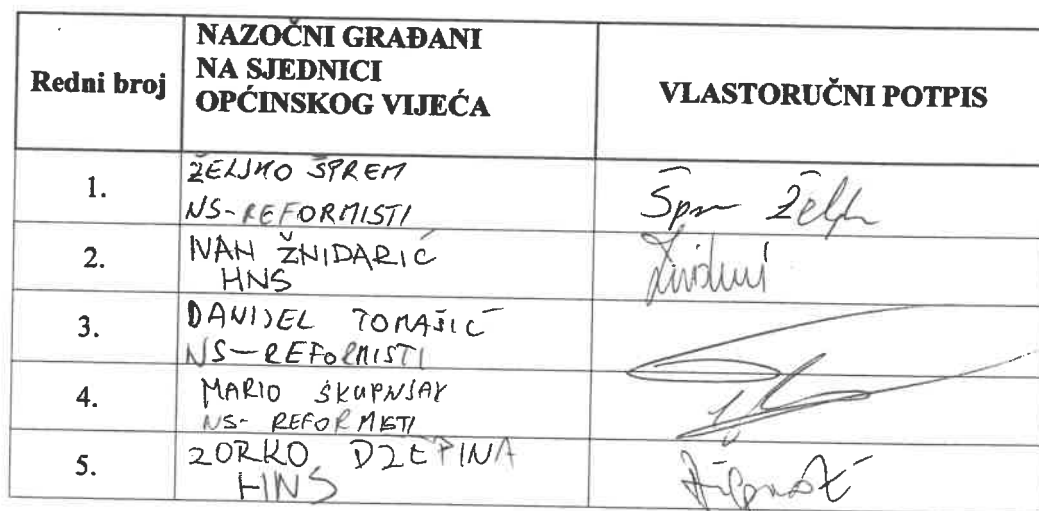 Redni broj
NAZOČNI GRAĐANI
NA SJEDNICI
OPĆINSKOG VIJEĆA
VLASTORUČNI POTPIS
1.
ŽELJKO ŠPREM
NS-REFORMISTI
Špr Želj
2.
IVAN ŽNIDARIĆ
HNS
3.
DANIJEL TOMAŠIĆ
NS-REFORMISTI
4.
MARIO ŠKUPNJAK
NS-REFORMISTI
5.
ZORKO DŽEPINA
HNS